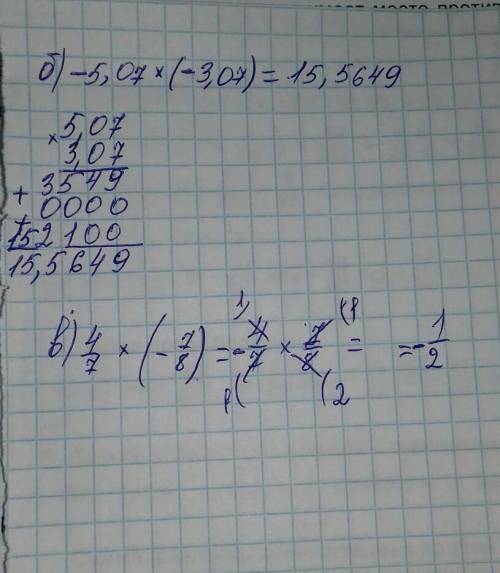 б) -5,07 × (-3,07) = 15,5649
× 5,07
3,07
+ 3549
+ 0000
152100
15,5649
в) 4/7 × (- 7/8) = - 4/7 × 7/8 = = - 1/2